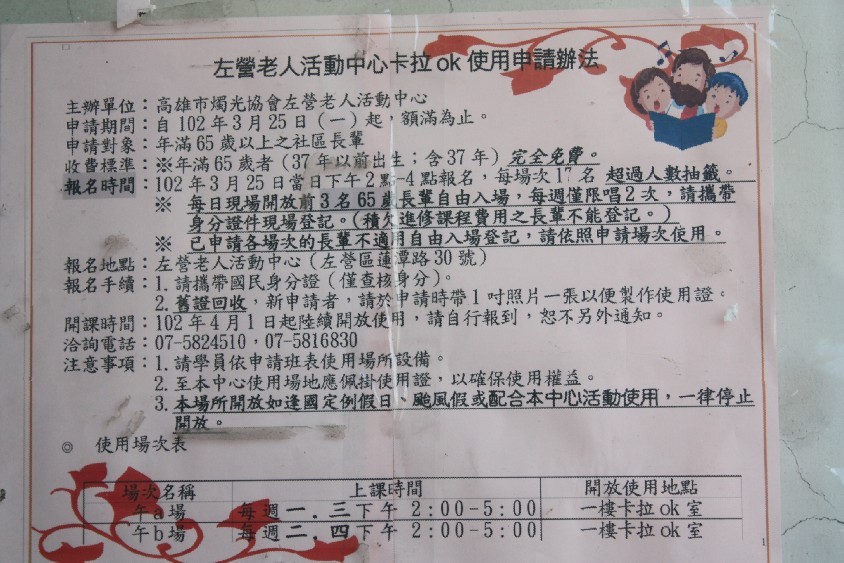 左營老人活動中心卡拉ok使用申請辦法
主辦單位：高雄市燭光協會左營老人活動中心
申請期間：自102年3月25日（一）起，額滿為止。
申請對象：年滿65歲以上之社區長輩
收費標準：※年滿65歲者（37年以前出生；含37年）完全免費。
報名時間：102年3月25日當日下午2點-4點報名，每場次17名 超過人數抽籤。
※ 每日現場開放前3名65歲長輩自由入場，每週僅限唱2次，請攜帶
身分證件現場登記。（積欠進修課程費用之長輩不能登記。）
※ 已申請各場次的長輩不適用自由入場登記，請依照申請場次使用。
報名地點：左營老人活動中心（左營區蓮潭路30號）
報名手續：1.請攜帶國民身分證（僅查核身分）。
2.舊證回收，新申請者，請於申請時帶1吋照片一張以便製作使用證。
開課時間：102年4月1日起陸續開放使用，請自行報到，恕不另外通知。
洽詢電話：07-5824510，07-5816830
注意事項：1.請學員依申請班表使用場所設備。
2.至本中心使用場地應佩掛使用證，以確保使用權益。
3.本場所開放如逢國定例假日、颱風假或配合本中心活動使用，一律停止
開放。
◎ 使用場次表
場次名稱 上課時間 開放使用地點
午a場 每週一．三下午 2:00-5:00 一樓卡拉ok室
午b場 每週二．四下午 2:00-5:00 一樓卡拉ok室
1